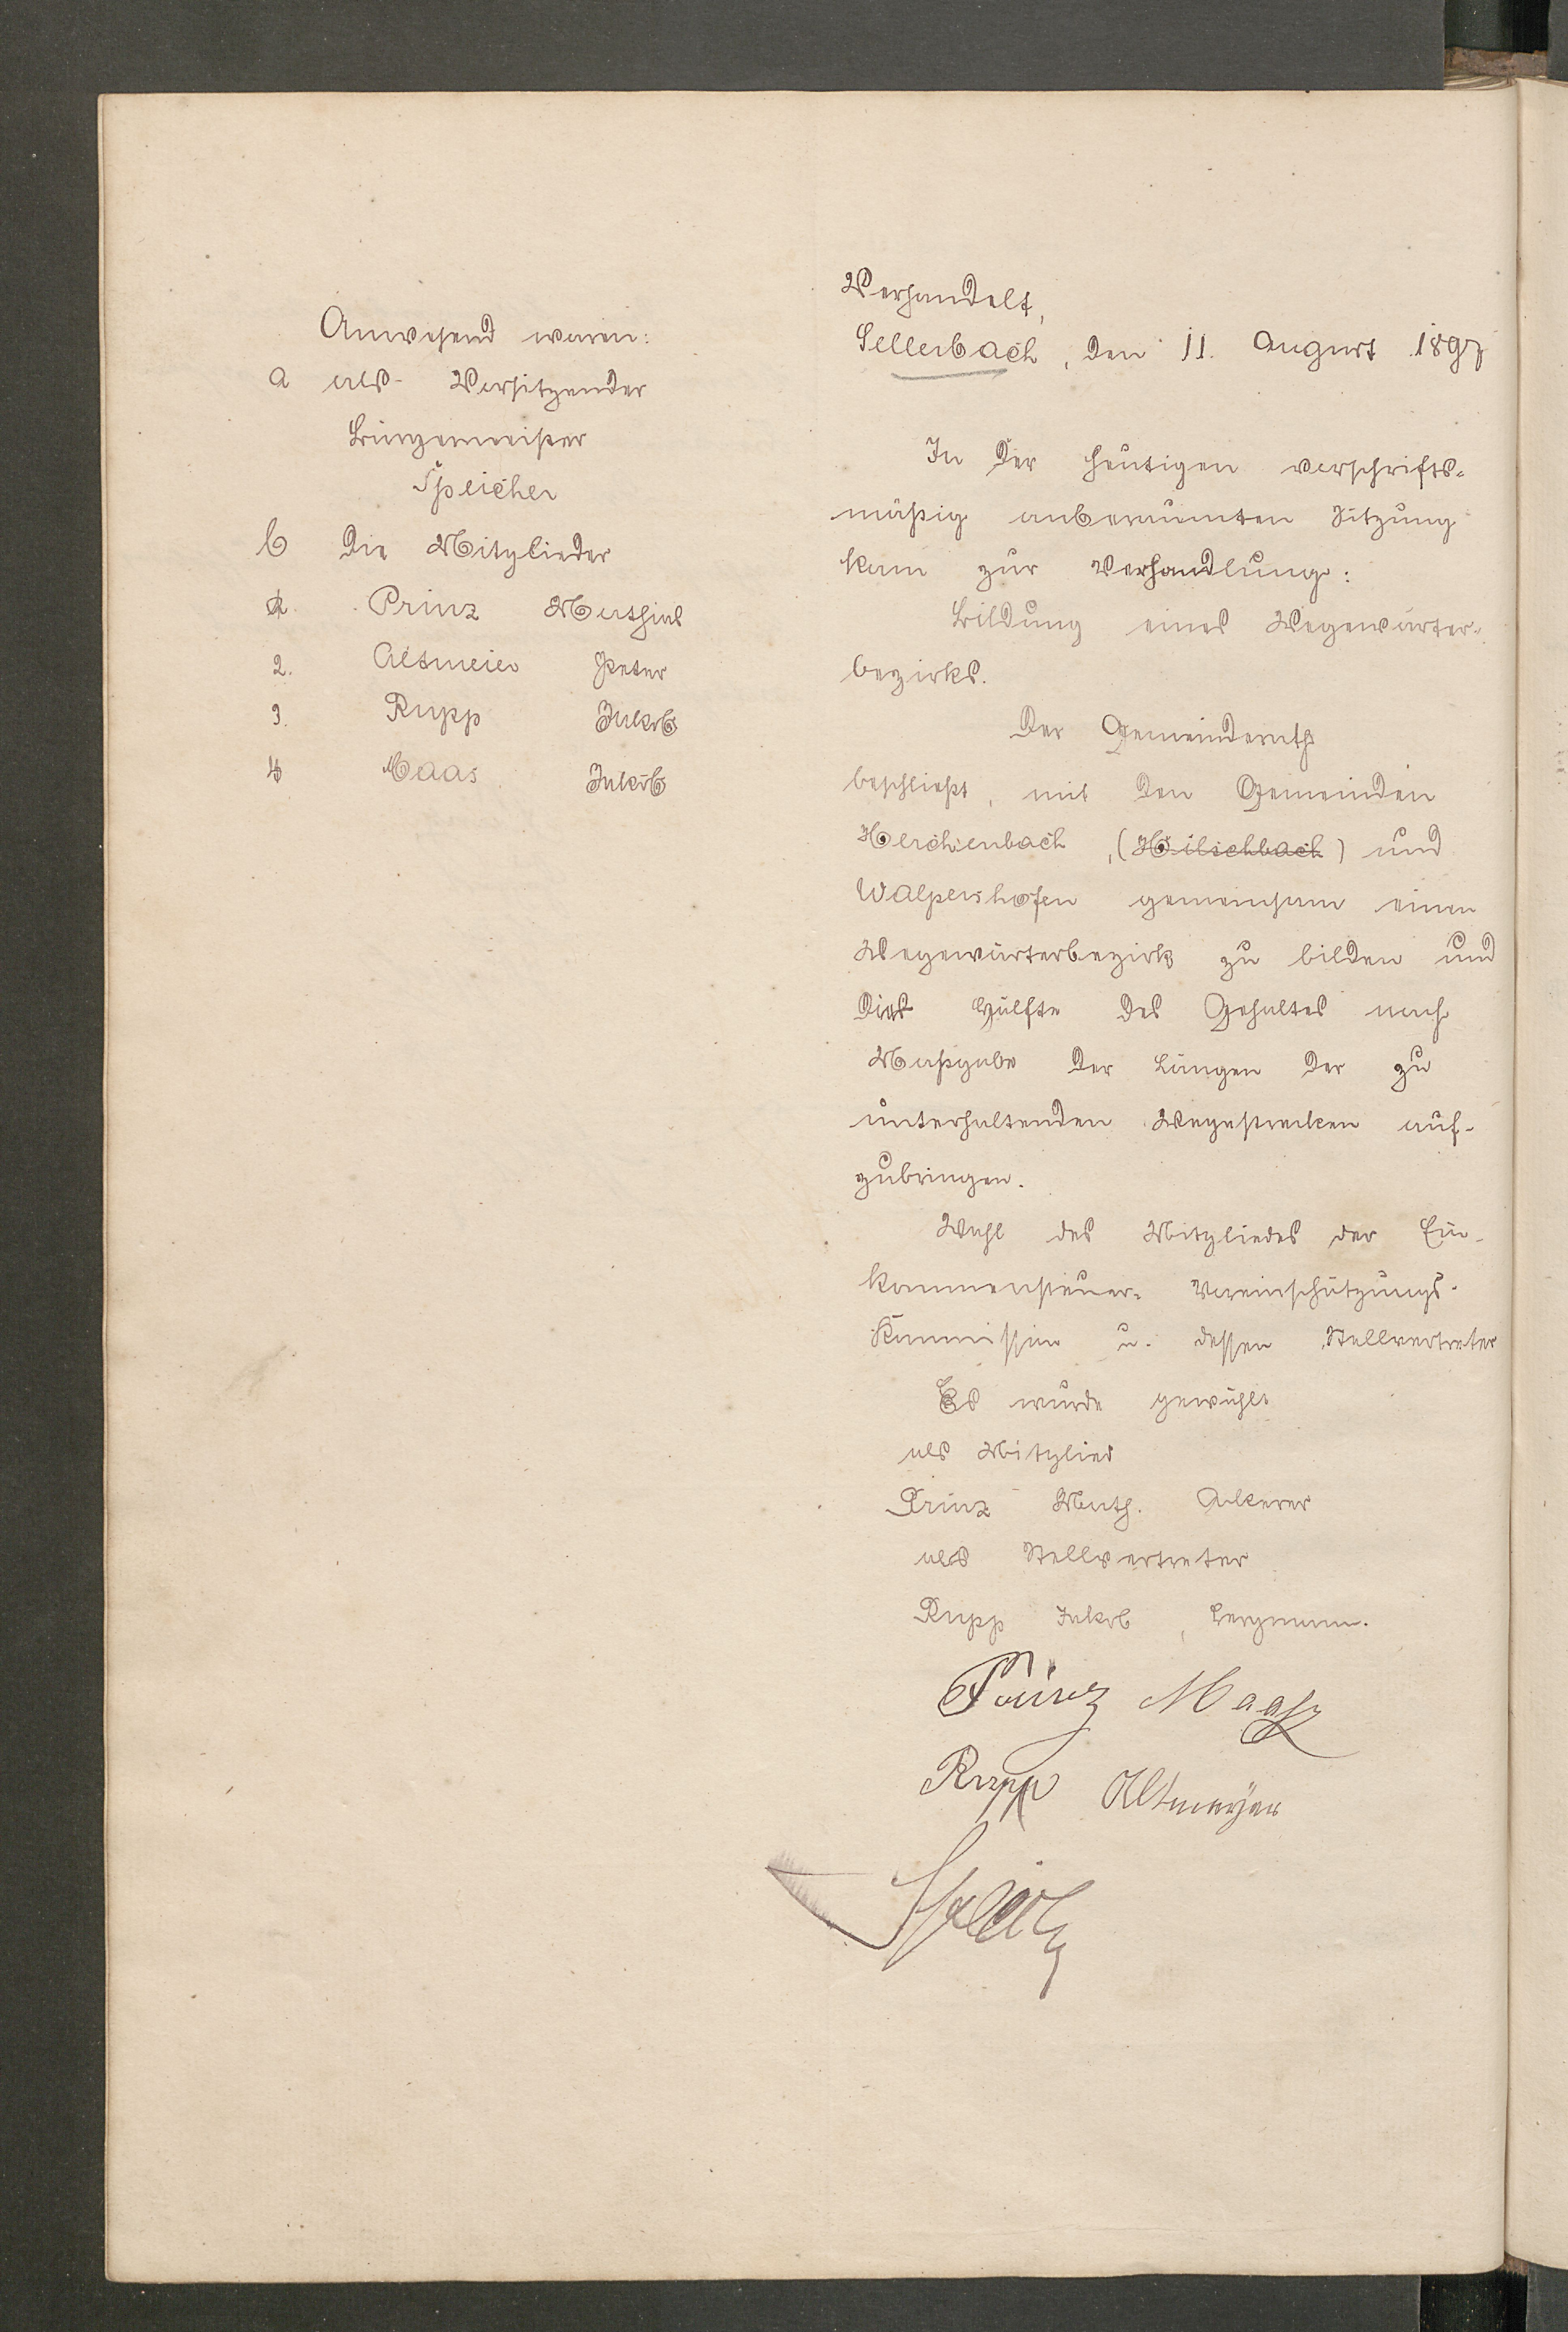 Anwesend waren:
a als Vorsitzender
Bürgermeister
Speicher
b die Mitglieder
1. Prinz Mathias
2. Altmeier Peter
3. Rupp Jakob
4 Maas Jakob
Verhandelt,
Sellerbach, den 11. August 1897
In der heutigen vorschrifts-
mäßig anberaumten Sitzung
kam zur Verhandlung:
Bildung eines Wegewärter-
bezirks.
Der Gemeinderath
beschließt, mit den Gemeinden
Herchenbach, (Hilschbach) und
Walpershofen gemeinsam einen
Wegewärterbezirk zu bilden und
die Hälfte des Gehaltes nach
Maßgabe der Längen der zu
unterhaltenden Wegestrecken auf-
zubringen.
Wahl des Mitgliedes der Ein-
kommensteuer- Voreinschätzungs-
Kommission u. dessen Stellvertreter
Es wurde gewählt
als Mitglied
Prinz Math. Ackerer
als Stellvertreter
Rupp Jakob, Bergmann.
Prinz Maaß
Rupp Altmeyer
Speicher